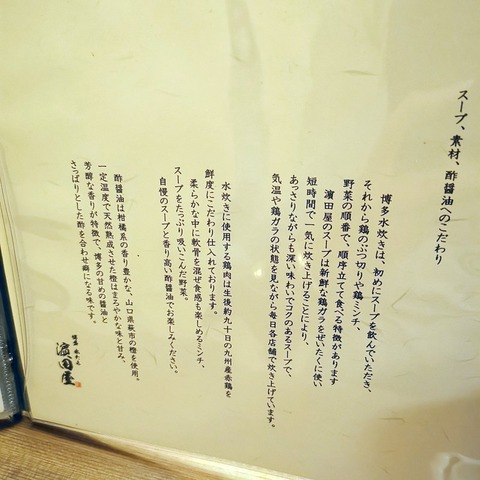 スープ、素材、酢醤油へのこだわり
博多水炊きは、初めにスープを飲んでいただき、
それから鶏のぶつ切りや鶏ミンチ、
野菜の順番で、順序立てて食べる特徴があります
濵田屋のスープは新鮮な鶏ガラをぜいたくに使い
短時間で一気に炊き上げることにより、
あっさりながらも深い味わいでコクのあるスープで、
気温や鶏ガラの状態を見ながら毎日各店舗で炊き上げています。
水炊きに使用する鶏肉は生後約九十日の九州産赤鶏を
鮮度にこだわり仕入れております。
柔らかな中に軟骨を混ぜ食感も楽しめるミンチ、
スープをたっぷり吸いこんだ野菜。
自慢のスープと香り高い酢醤油でお楽しみください。
酢醤油は柑橘系の香り豊かな、山口県萩市の橙を使用。
一定温度で天然熟成させた橙はまろやかな味と甘み、
芳醇な香りが特徴で、博多の甘めの醤油と
さっぱりとした酢を合わせ癖になる味です。
博多 水たき
濵田屋